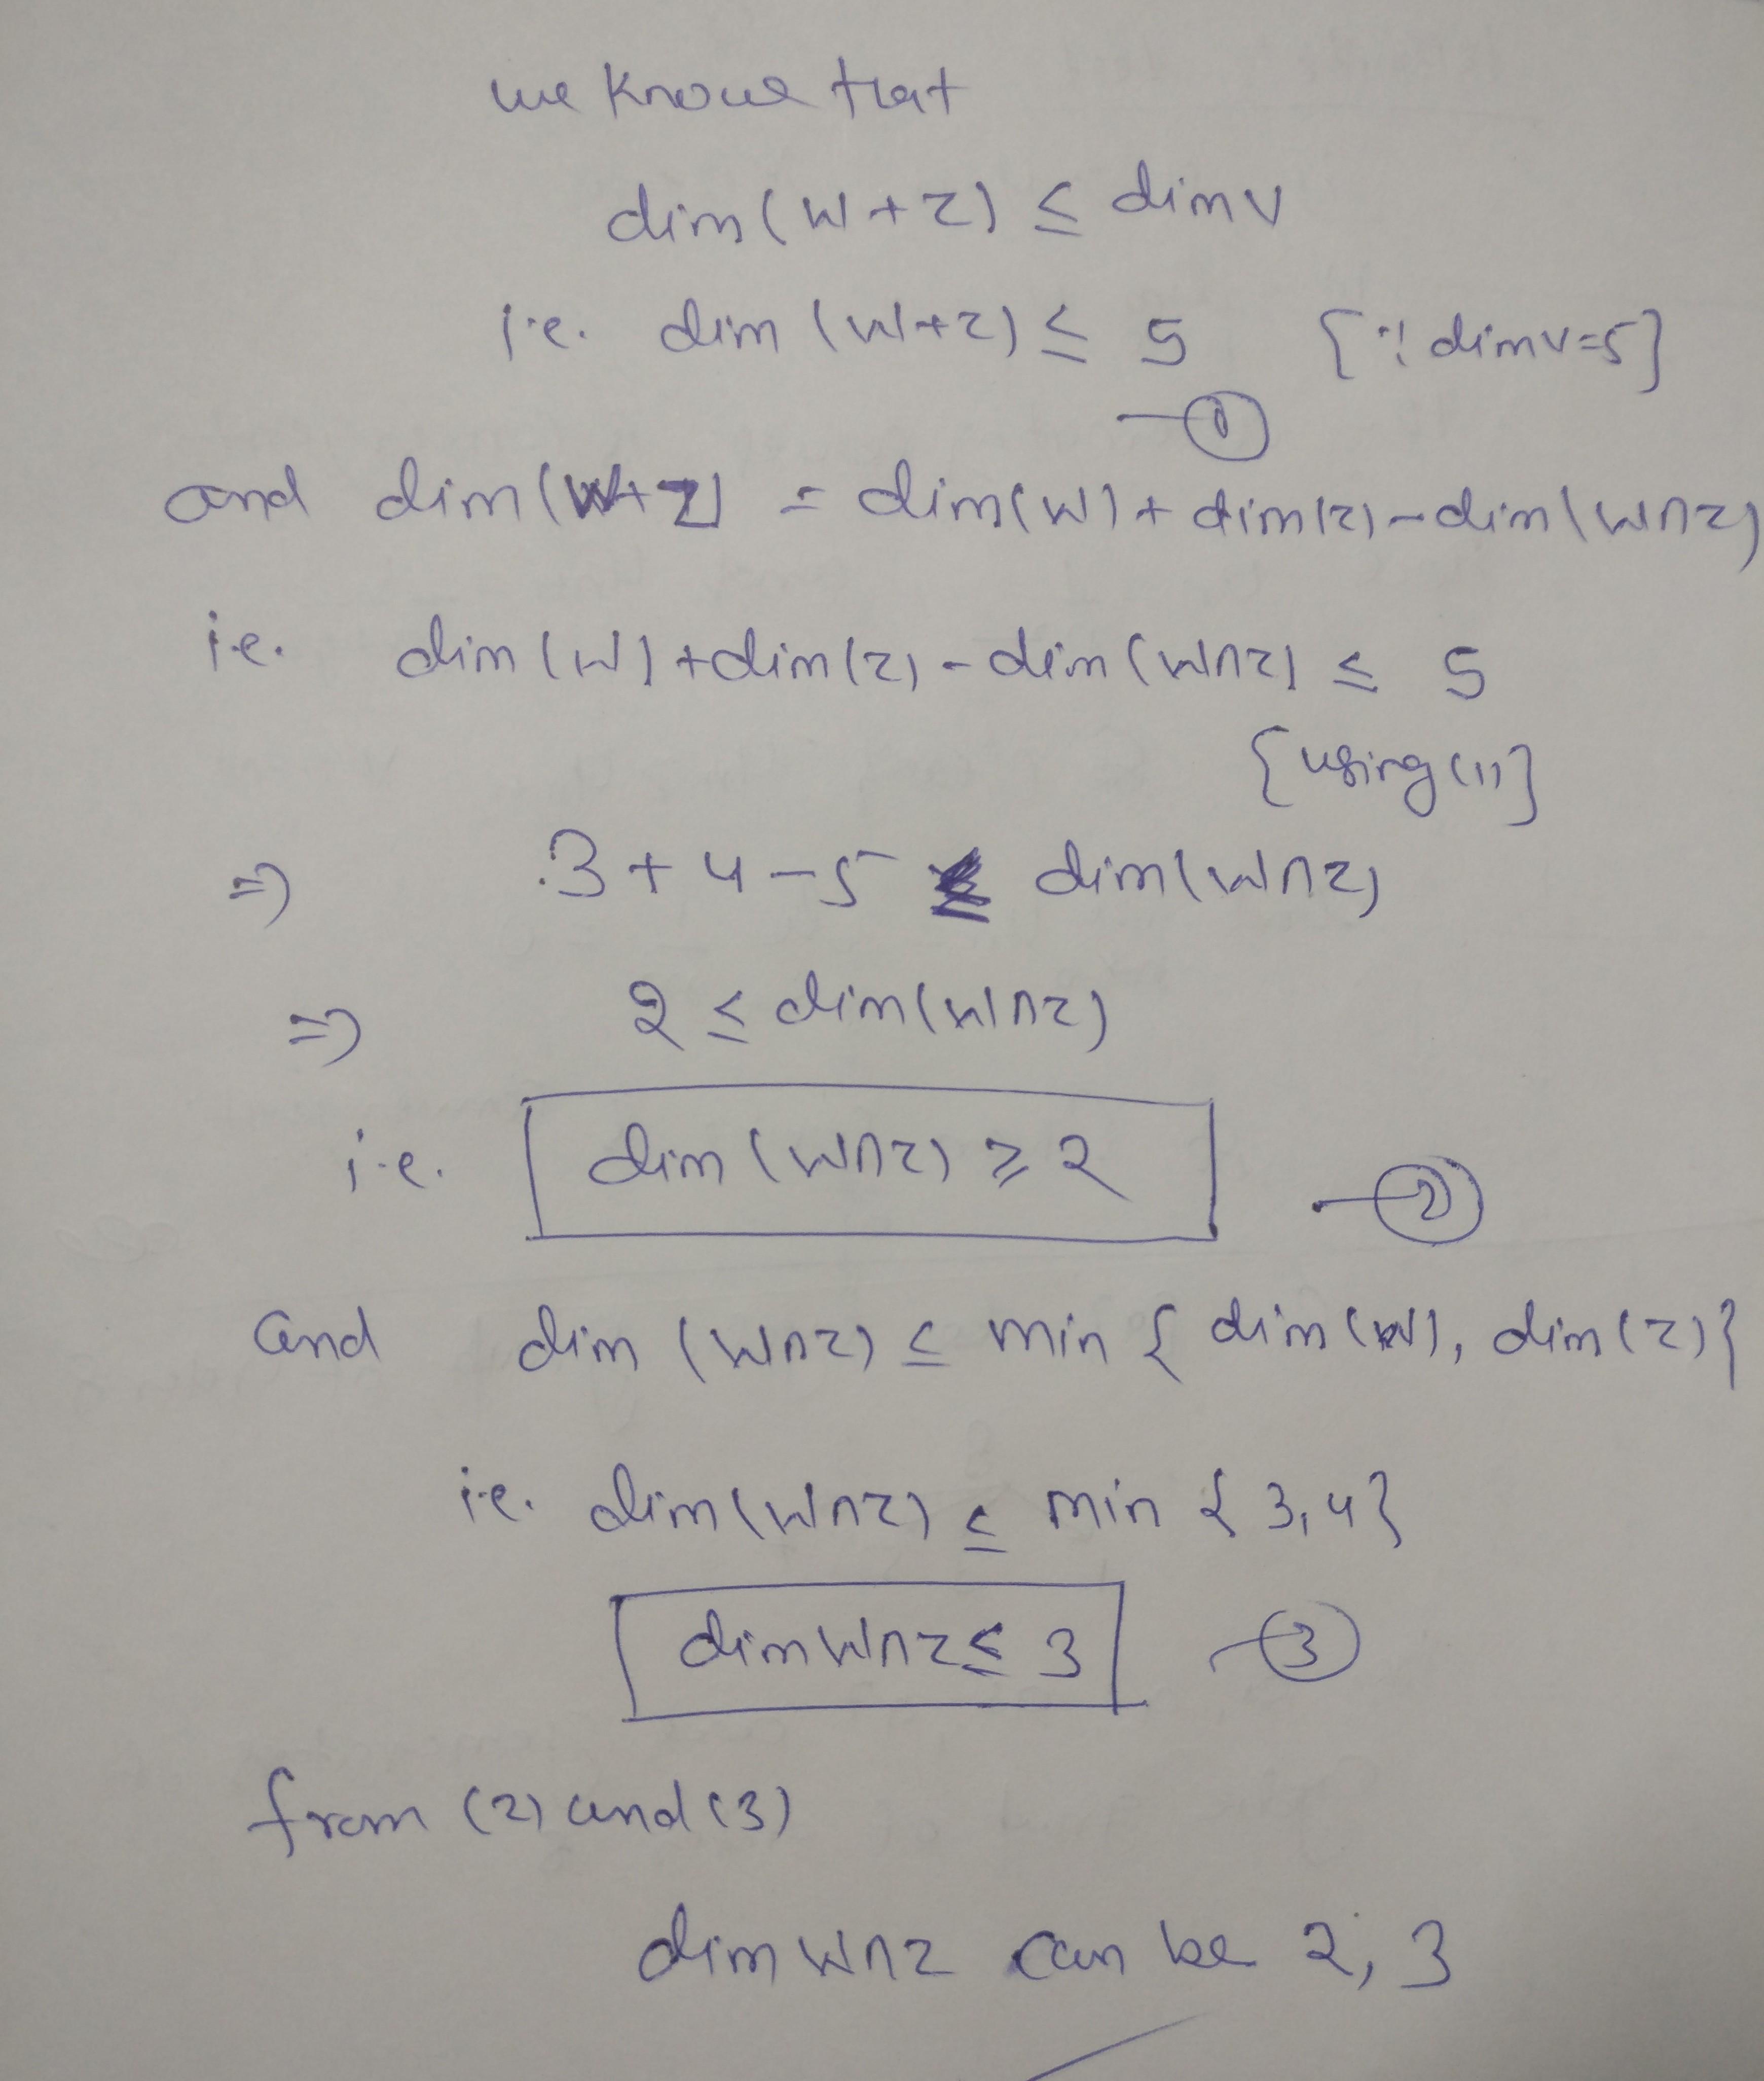 we know that
dim(W+Z) ≤ dimV
i.e. dim (W+Z) ≤ 5 {∵ dimV=5}
—①
and dim(W+Z) = dim(W)+dim(Z)-dim(W∩Z)
i.e. dim(W)+dim(Z)-dim(W∩Z) ≤ 5
{using(1)}
⇒ 3+4-5 ≤ dim(W∩Z)
⇒ 2 ≤ dim(W∩Z)
i.e. dim(W∩Z) ≥ 2 —②
and dim (W∩Z) ≤ min { dim(W), dim(Z)}
i.e. dim(W∩Z) ≤ min {3,4}
dimW∩Z ≤ 3 —③
from (2) and (3)
dim W∩Z can be 2, 3